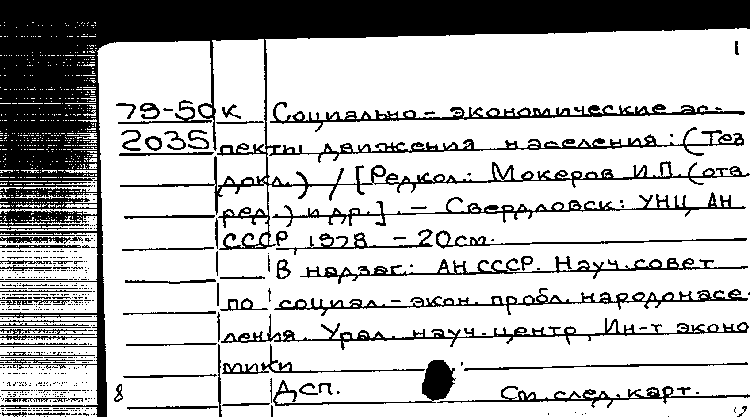 1
79-50к Социально-экономические ас-
2035 пекты движения населения: (Тез
докл.) / [Редкол.: Мокеров И.П. (отв.
ред.) и др.]. - Свердловск: УНЦ АН
СССР, 1978 - 20см.
В надзаг.: АН СССР. Науч. совет
по социал.-экон. пробл. народонасе-
ления. Урал. науч. центр, Ин-т эконо
мики
8 Дсп. См. след. карт.